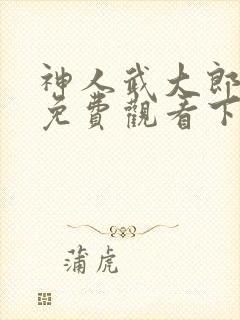 神人武大郎
免費觀看下
蒲虎